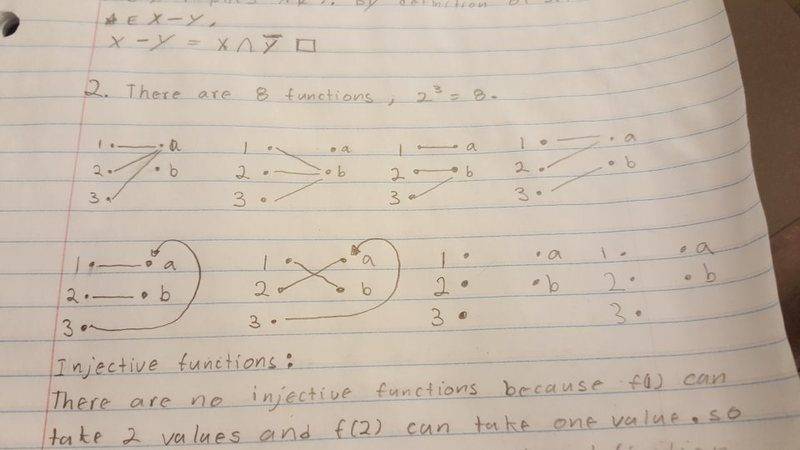 by definition of
∈ X - Y.
X - Y = X ∩ Y̅ □
2. There are 8 functions, 2³ = 8.
1 a 1 a 1 a 1 a
2 b 2 b 2 b 2 b
3 3 3 3
1 a 1 a 1 a 1 a
2 b 2 b 2 b 2 b
3 3 3 3
Injective functions:
There are no injective functions because f(1) can
take 2 values and f(2) can take one value. so